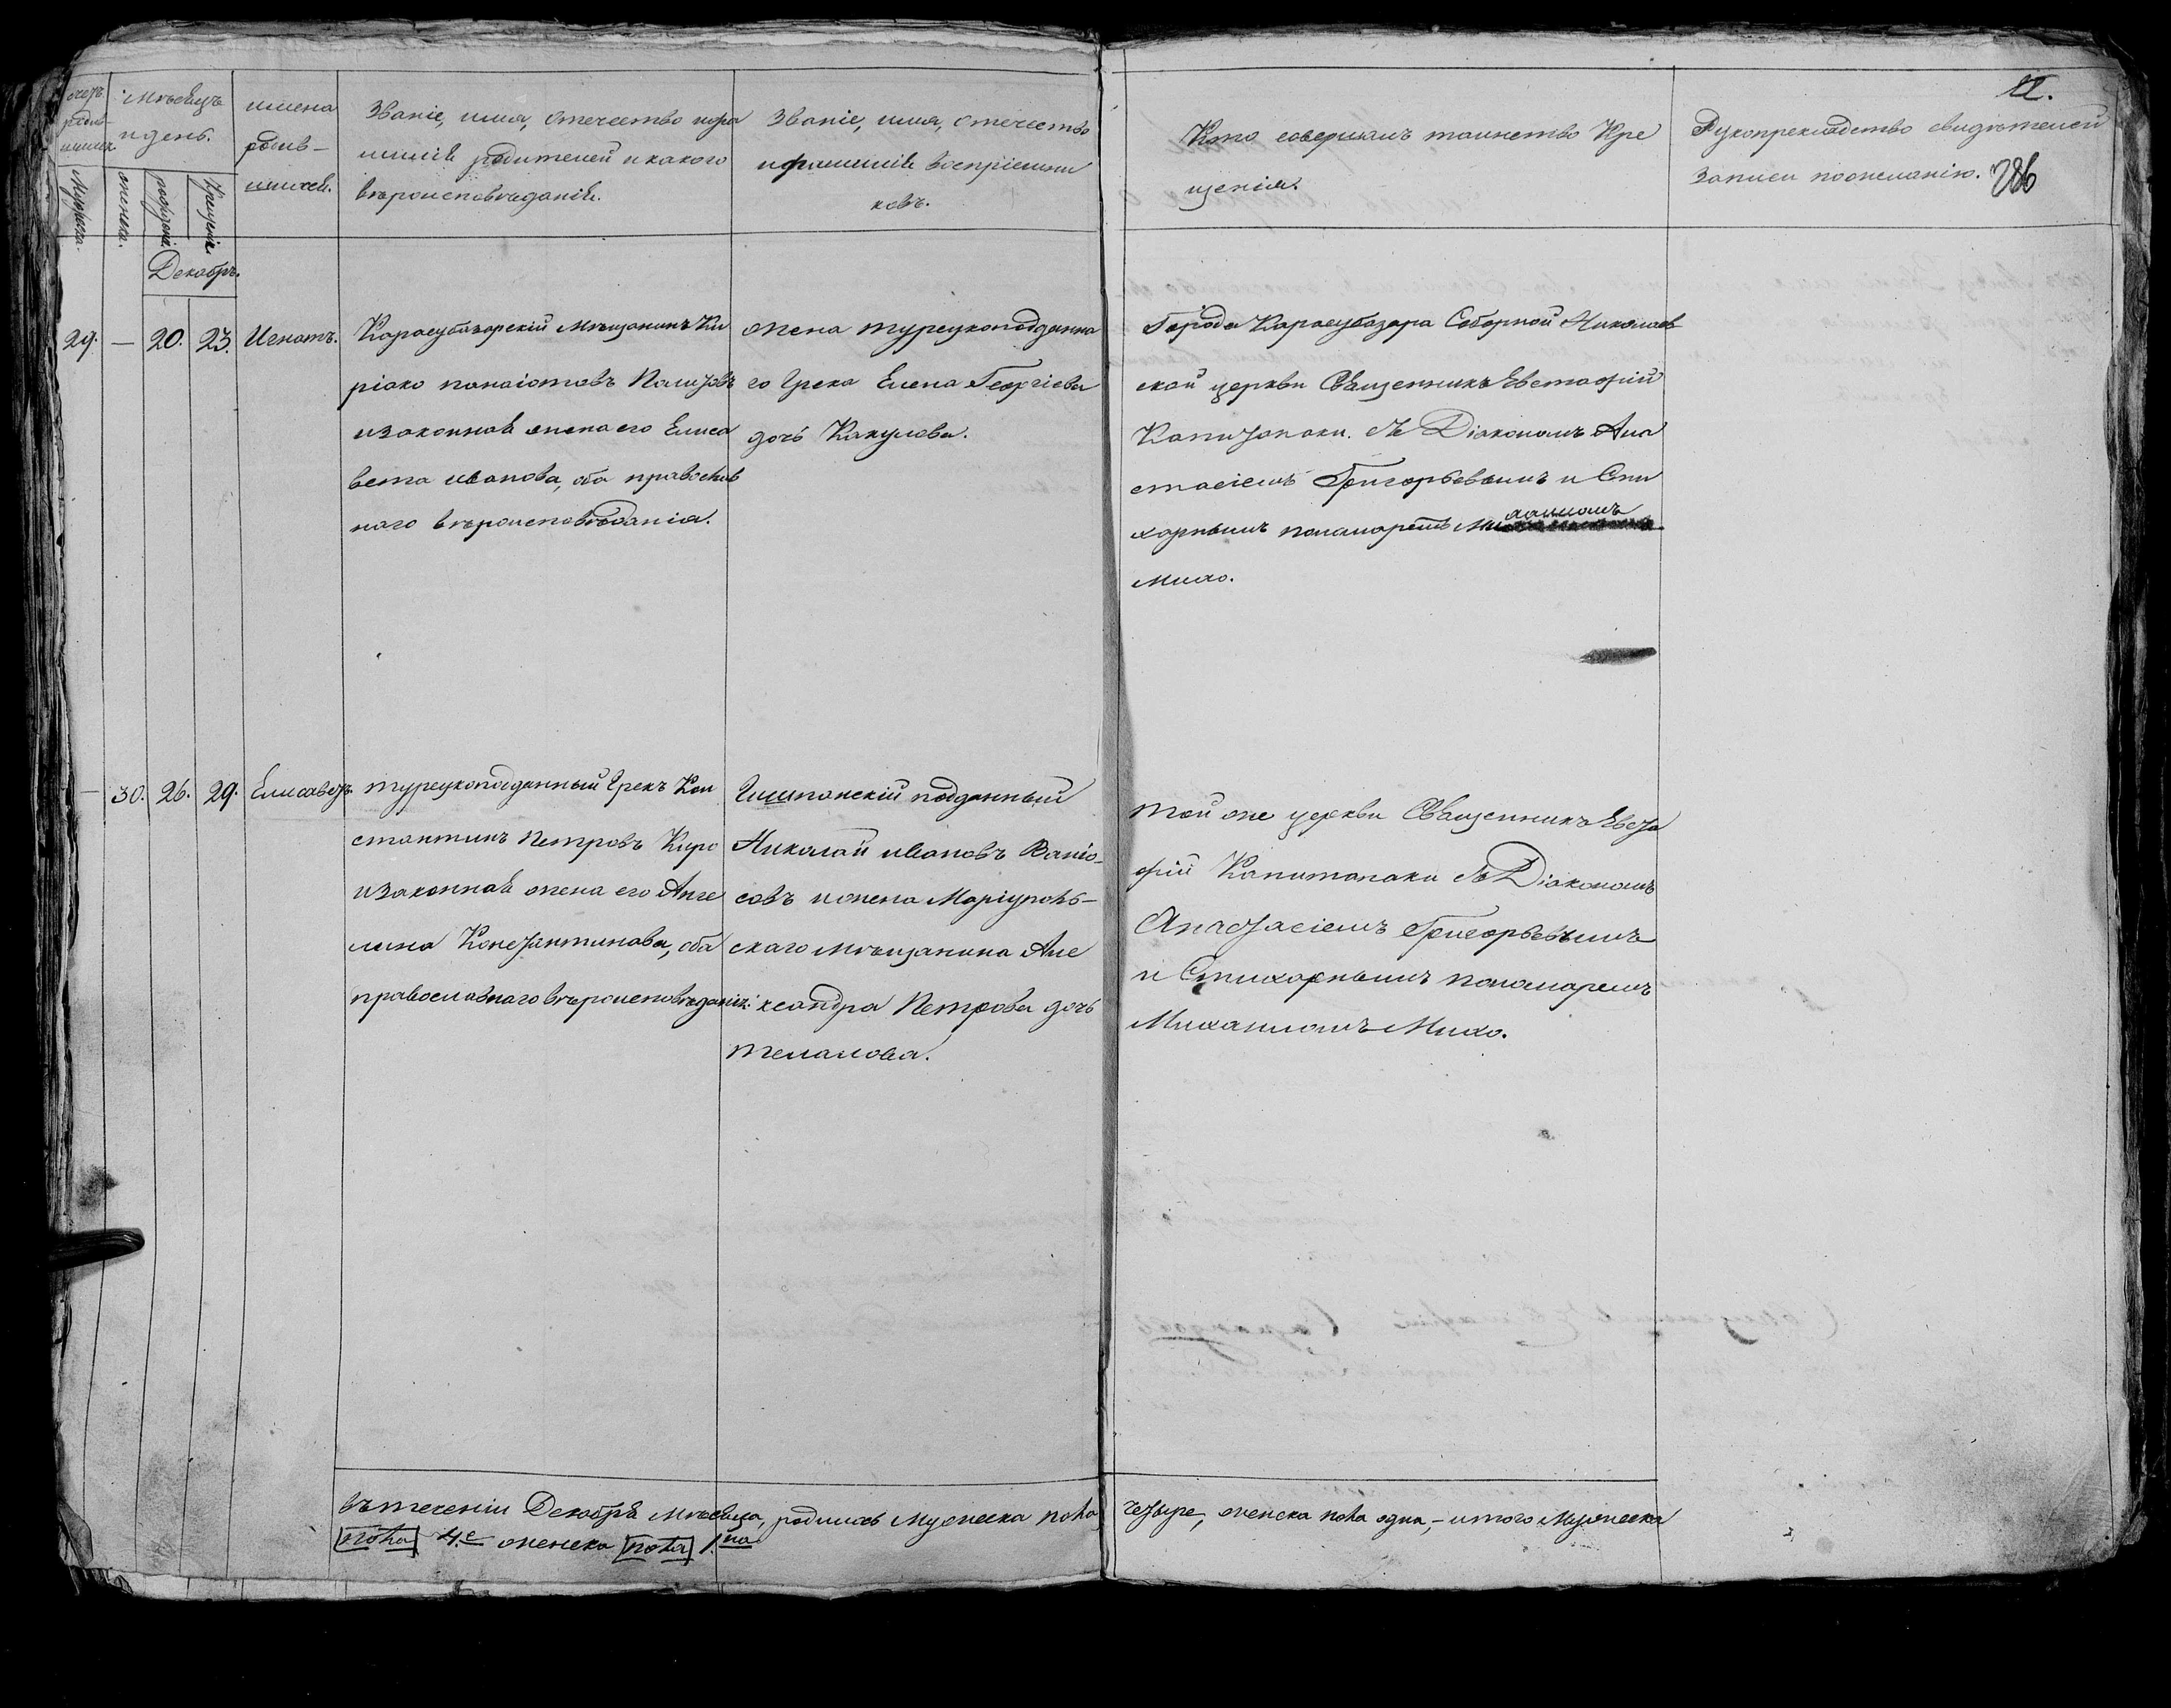 11.
286
счетъ родив-шихся.
Мужеска.
женска.
Мѣсяцъ
и день.
рожденія.
Крещенія.
имена
родив-
шихся.
Званіе, имя, отечество и фа
миліѣ родителей и какого
вѣроисповѣданіѣ.
Званіе, имя, отечество
и фамиліѣ воспріемни
ковъ.
Кто совершалъ таинство Кре
щенія.
Рукоприкладство свидѣтелей
записи по желанію.
Декабрь.
29. — 20. 23. Игнатъ.
Карасубазарскій мѣщанинъ Ки
ріако панаіотовъ
и законнаѣ жена его Елиса
вета иванова, оба православ
наго вѣроисповѣданія.
жена турецкоподданна
го Грека Елена Георгіева
дочь Какулова.
Города Карасубазара Соборной Николаев
ской церкви Священникъ Евстафій
Капитанаки. съ Діакономъ Ана
стасіемъ Григорьевымъ и Сти
харнымъ пономаремъ Михаиломъ
Михо.
— 30. 26. 29. Елисаветъ
турецкоподданный Грекъ Кон
стантинъ Петровъ Киро
и законнаѣ жена его Анге
лина Константинова, оба
православнаго вѣроисповѣданія.
Гишпанскій подданный
Николай ивановъ
совъ и жена Маріуполь-
скаго мѣщанина Але
ксандра Петрова дочь
темалова.
той же церкви Священникъ Евста
фій Капитанаки съ Діакономъ
Анастасіемъ Григорьевымъ
и Стихарнымъ пономаремъ
Михаиломъ Михо.
въ теченіи Декабрѣ мѣсяца, родилось мужеска пола четыре, женска пола одна, – итого мужеска
пола 4.е женска пола 1.на